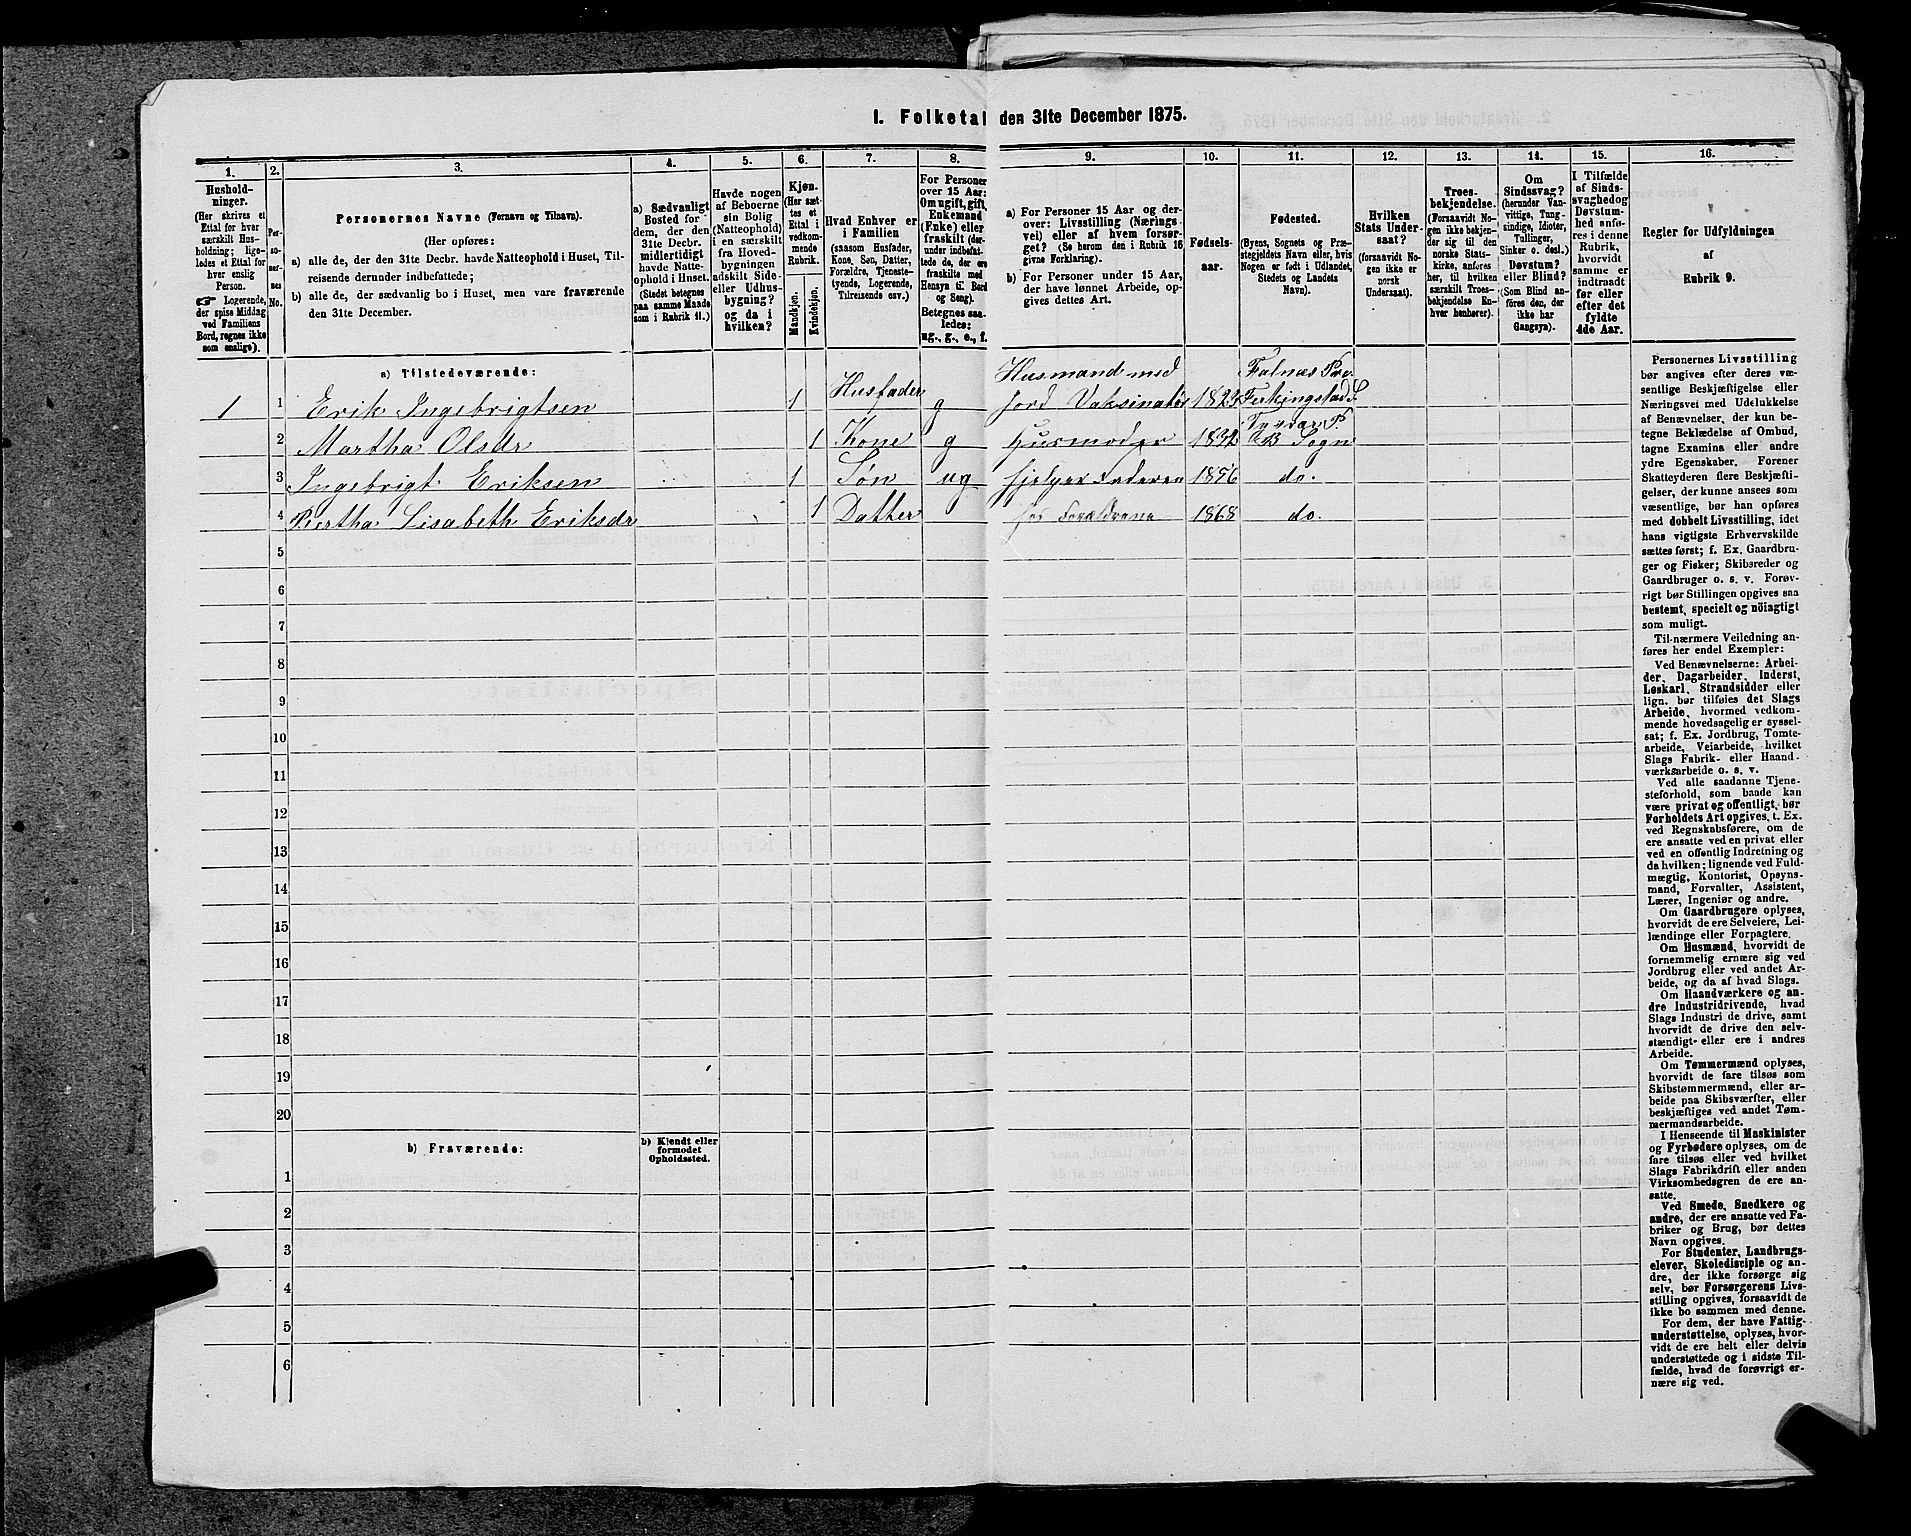 1. Folketal den 31te December 1875.
1.
2.
3.
4.
5.
6.
7.
8.
9.
10.
11.
12.
13.
14.
15.
16.
Hushold-
ninger.
(Her skrives et
Ettal for hver
særskilt Hus-
holdning; lige-
ledes et Ettal for
hver enslig
Person.
☞ Logerende,
der spise Middag
ved Familiens
Bord, regnes ikke
som enslige).
Per-
so-
ner-
nes
No.
Personernes Navne (Fornavn og Tilnavn).
(Her opføres:
a) alle de, der den 31te Decbr. havde Natteophold i Huset, Til-
reisende derunder indbefattede;
b) alle de, der sædvanlig bo i Huset, men vare fraværende
den 31te December.
a) Sædvanligt
Bosted for
dem, der den
31te Decbr.
midlertidigt
havde Natte-
ophold i Huset.
(Stedet betegnes
paa samme Maade
som i Rubrik 11.)
Havde nogen
af Beboerne
sin Bolig
(Natteophold)
i en særskilt
fra Hoved-
bygningen
adskilt Side-
eller Udhus-
bygning?
og da i
hvilken?
Kjøn.
(Her sæt-
tes et
Ettal i
vedkom-
mende
Rubrik.
Mandkjøn.
Kvindekjøn.
Hvad Enhver er
i Familien
(saasom Husfader,
Kone, Søn, Datter,
Forældre, Tjeneste-
tyende, Logerende,
Tilreisende osv.)
For Personer
over 15 Aar:
Om ugift, gift,
Enkemand
(Enke) eller
fraskilt (der-
under indbefat-
tede de, der ere
fraskilte med
Hensyn til Bord
og Seng).
Betegnes saa-
ledes:
ug., g., e., f.
a) For Personer 15 Aar og der-
over: Livsstilling (Nærings-
vei) eller af hvem forsør-
get? (Se herom den i Rubrik 16
givne Forklaring).
b) For Personer under 15 Aar,
der have lønnet Arbeide, op-
gives dettes Art.
Fødsels-
aar.
Fødested.
(Byens, Sognets og Præ-
stegjeldets Navn eller, hvis
Nogen er født i Udlandet,
Stedets og Landets
Navn).
Hvilken
Stats Under-
saat?
(forsaavidt No-
gen ikke er
norsk
Undersaat).
Troes-
bekjendelse.
(Forsaavidt No-
gen ikke bekjen-
der sig til den
norske Stats-
kirke, anføres
her, til hvilken
særskilt Troes-
bekjendelse En-
hver henhører).
Om
Sindssvag?
(herunder Van-
vittige, Tung-
sindige, Idioter,
Tullinger,
Sinker o. desl.)
Døvstum?
eller Blind?
(Som Blind an-
føres den, der
ikke har
Gangsyn).
I Tilfælde
af Sinds-
svaghed og
Døvstum-
hed anfø-
res i denne
Rubrik,
hvorvidt
samme er
indtraadt
før eller
efter det
fyldte
4de Aar.
Regler for Udfyldningen
af
Rubrik 9.
a) Tilstedeværende:
1 1 Erik Ingebrigtsen 1 Husfader g Husmand med
Jord Vaksinatør 1823 Falnæs Pre.
Ferkingstad S.
2 Martha Olsdr 1 Kone g Husmoder 1832 Tysvær P.
B Sogn
3 Ingebrigt Eriksen 1 Søn ug hjelper Faderen 1856 do.
4 Bertha Lisabeth Eriksdr 1 Datter hos Forældrene 1868 do.
5
6
7
8
9
10
11
12
13
14
15
16
17
18
19
20
b) Fraværende:
b) Kjendt eller
formodet
Opholdssted.
1
2
3
4
5
6
Personernes Livsstilling
bør angives efter deres væ-
sentlige Beskjæftigelse eller
Næringsvei med Udelukkelse
af Benævnelser, der kun be-
tegne Beklædelse af Ombud,
tagne Examina eller andre
ydre Egenskaber. Forener
Skatteyderen flere Beskjæfti-
gelser, der kunne ansees som
væsentlige, bør han opføres
med dobbelt Livsstilling, idet
hans vigtigste Erhvervskilde
sættes først; f. Ex. Gaardbru-
ger og Fisker; Skibsreder og
Gaardbruger o. s. v. Forøv-
rigt bør Stillingen opgives saa
bestemt, specielt og nöiagtigt
som muligt.
Til nærmere Veiledning an-
føres her endel Exempler:
Ved Benævnelserne: Arbei-
der, Dagarbeider, Inderst,
Løskarl, Strandsidder eller
lign. bør tilføies det Slags
Arbeide, hvormed vedkom-
mende hovedsagelig er syssel-
sat; f. Ex. Jordbrug, Tomte-
arbeide, Veiarbeide, hvilket
Slags Fabrik- eller Haand-
værksarbeide o. s. v.
Ved alle saadanne Tjene-
steforhold, som baade kan
være privat og offentligt, bør
Forholdets Art opgives, t. Ex.
ved Regnskabsførere, om de
ere ansatte ved en privat eller
ved en offentlig Indretning og
da hvilken; lignende ved Fuld-
mægtig, Kontorist, Opsyns-
mand, Forvalter, Assistent,
Lærer, Ingeniør og andre.
Om Gaardbrugere oplyses,
hvorvidt de ere Selveiere, Lei-
lændinge eller Forpagtere.
Om Husmænd, hvorvidt de
fornemmelig ernære sig ved
Jordbrug eller ved andet Ar-
beide, og da af hvad Slags.
Om Haandværkere og an-
dre Industridrivende, hvad
Slags Industri de drive, samt
hvorvidt de drive den selv-
stændigt- eller ere i andres
Arbeide.
Om Tømmermænd oplyses,
hvorvidt de fare tilsøs som
Skibstømmermænd, eller ar-
beide paa Skibsværfter, eller
beskjæftiges ved andet Tøm-
mermandsarbeide.
I Henseende til Maskinister
og Fyrbødere oplyses, om de
fare tilsøs eller ved hvilket
Slags Fabrikdrift eller anden
Virksomhedsgren de ere an-
satte.
Ved Smede, Snedkere og
andre, der ere ansatte ved Fa-
briker og Brug, bør dettes
Navn opgives.
For Studenter, Landbrugs-
elever, Skoledisciple og an-
dre, der ikke forsørge sig
selv, bør Forsørgerens Livs-
stilling opgives, forsaavidt de
ikke bo sammen med denne.
For dem, der have Fattig-
understøttelse, oplyses, hvor-
vidt de ere helt eller delvis
understøttede og i sidste Til-
fælde, hvad de forøvrigt er-
nære sig ved.